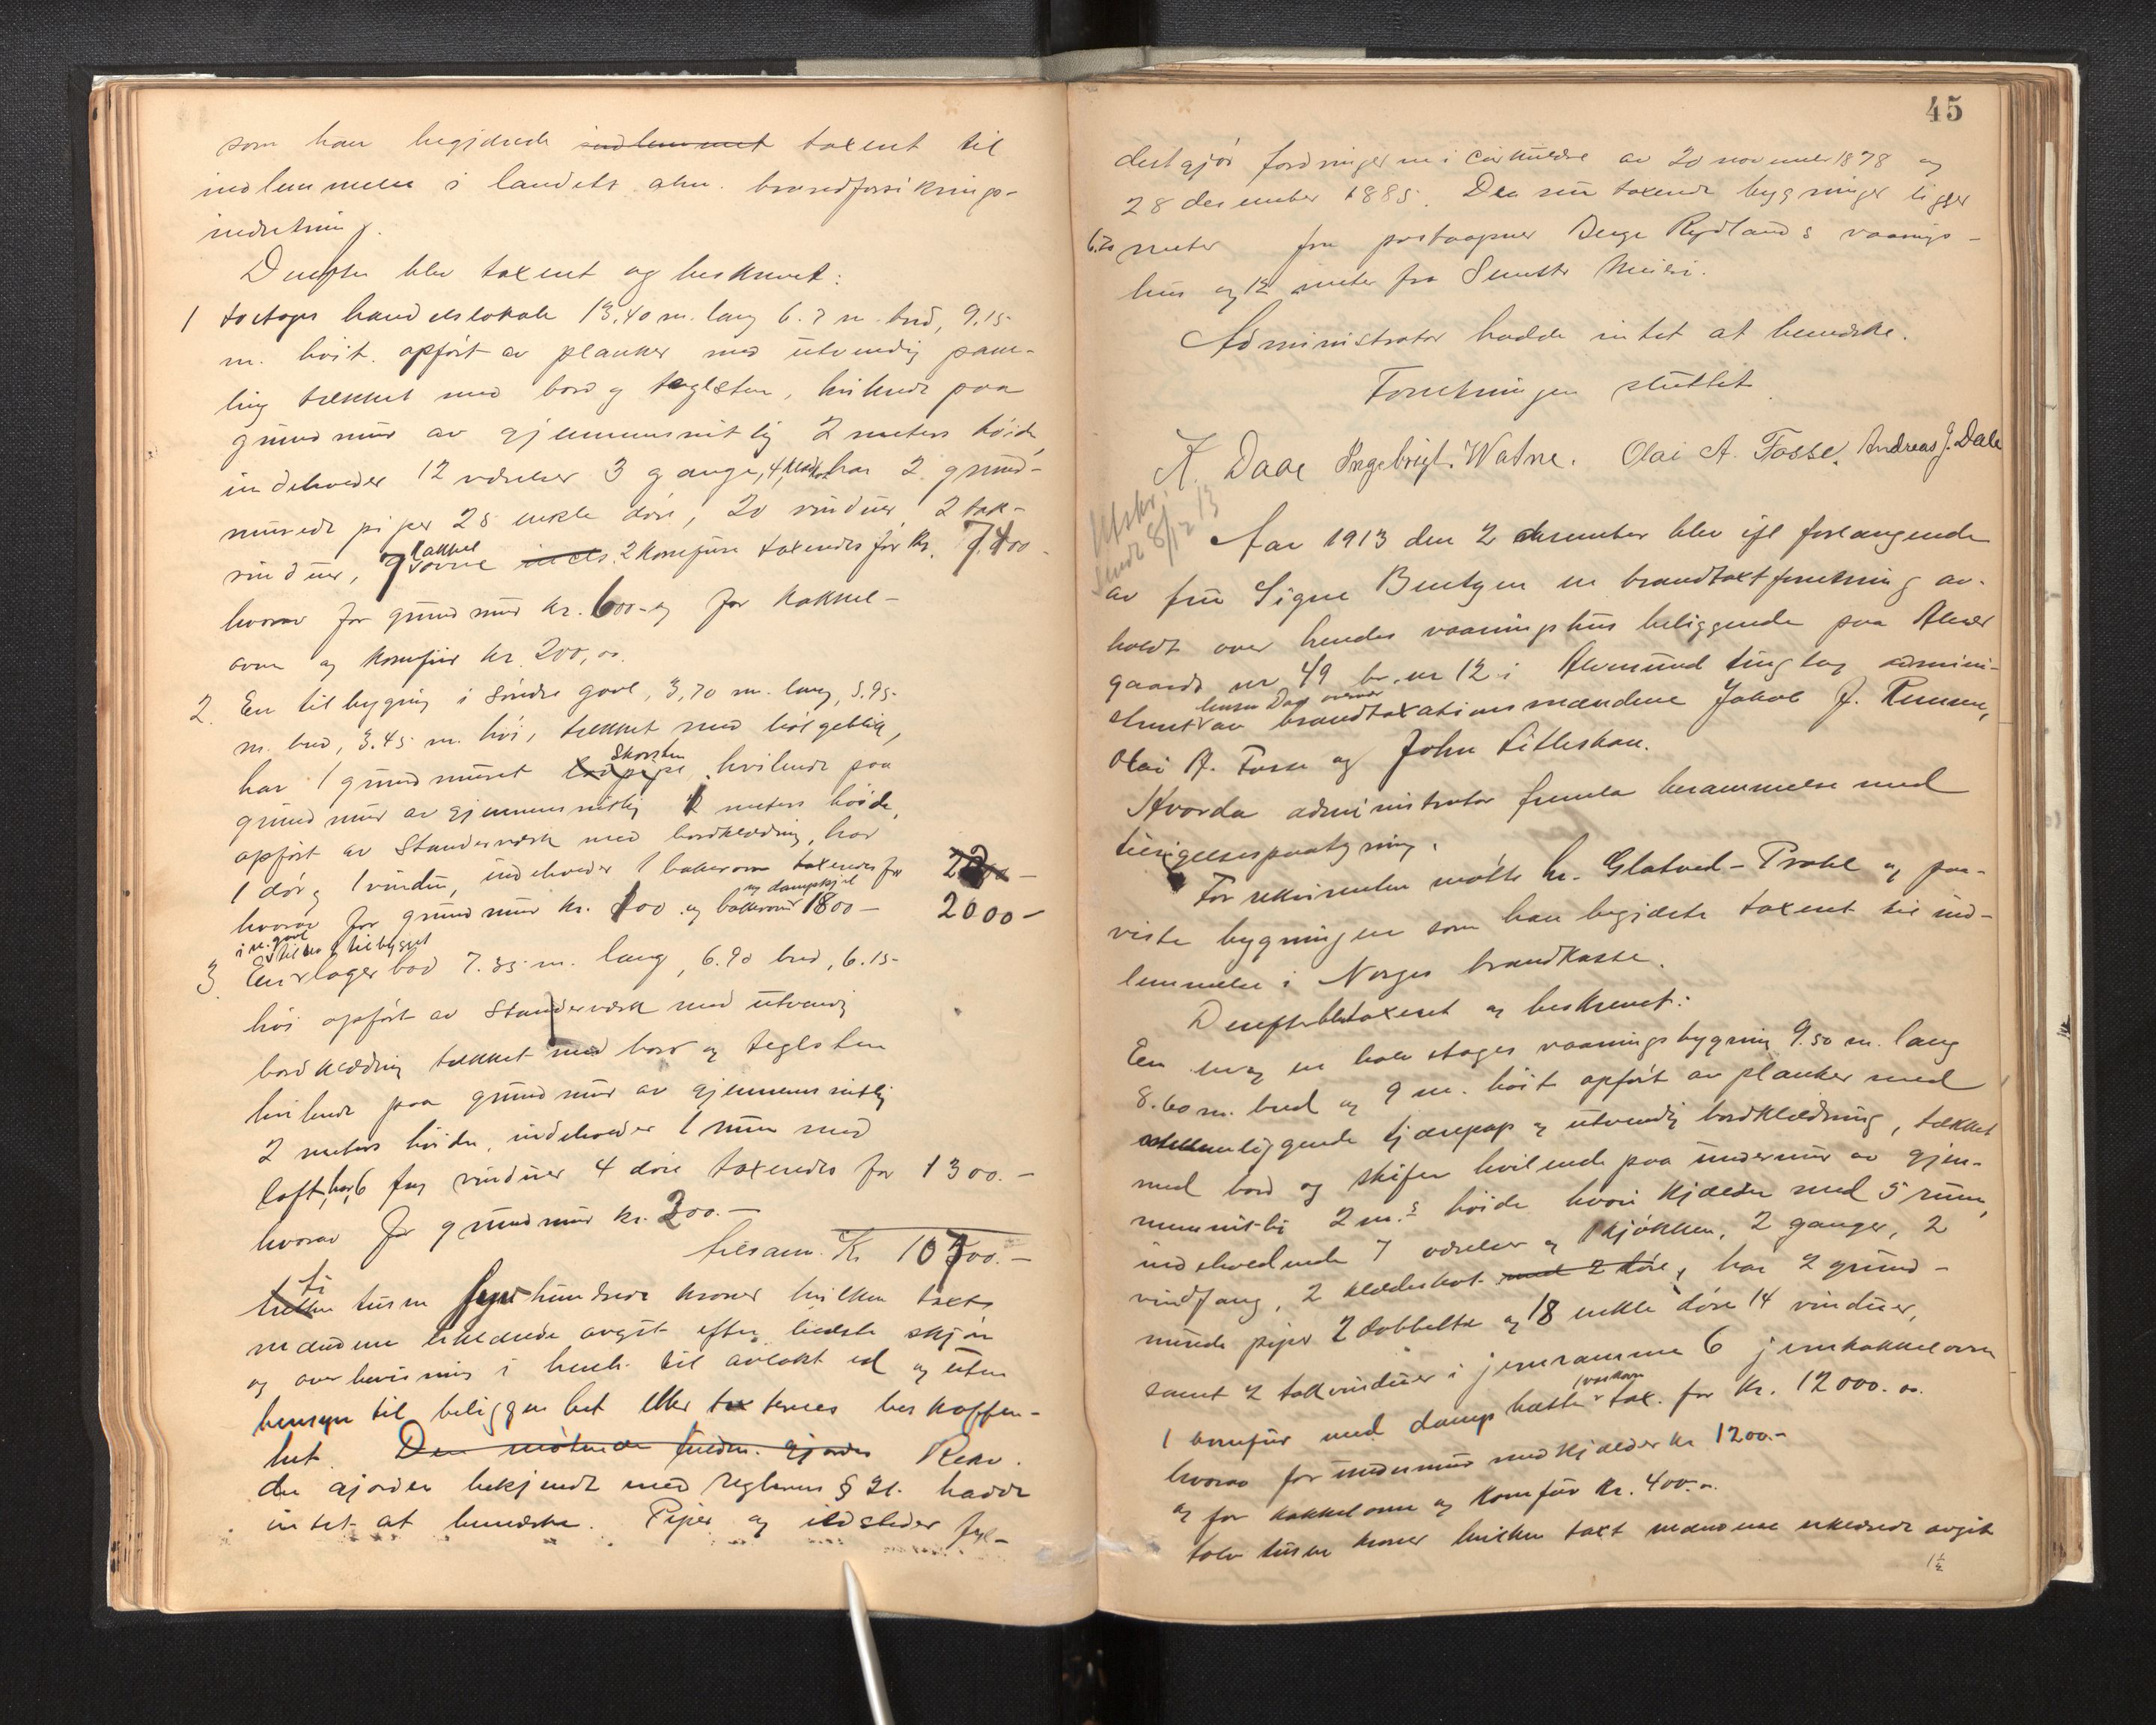 som han begjærede indlemmet taxert til
indlemmelse i landets alm. brandforsikrings-
indretning.
Derefter blev taxert og beskrevet:
1 toetages handelslokale 13,40 m. lang 6.7 m. bred, 9.15
m. høit. opført av planker med utvendig pane-
ling tækket med bord og teglsten, hvilende paa
grundmur av gjennemsnitlig 2 meters høide,
indeholder 12 værelser 3 gange, har 2 grund-
murede piper 25 enkle døre, 20 vinduer 2 tak-
vinduer, 9 kakkel ovne 2 komfurer taxeredes for kr. 7.400-
hvorav for grundmur kr. 600- og for kakkel-
ovne og komfur kr. 200,00.
2. En tilbygning i søndre gavl, 3,70 m. lang, 5.95
m. bred, 3.45 m. høi, tækket med bølgeblik,
har 1 grundmuret Skorsten hvilende paa
grundmur av gjennemsnitlig meters høide,
opført av Standerværk med bordklædning, har
1 dør og 1 vindu, indeholder 1 bakerovn taxeredes for
hvorav for grundmur kr. 100 og bakerovn og dampkjel 1800- 2000-
i n. gavl tilbygget
3. En lagerbod 7.35 m. lang, 6.90 bred, 6.15
høi opført av Standerværk med utvendig
bordklædning tækket med bord og teglsten
hvilende paa grundmur av gjennemsnitlig
2 meters høide, indeholder 1 rum med
loft, har 6 fag vinduer 4 døre taxeredes for 1300.-
hvorav for grundmur kr. 300.-
tilsam. Kr 10700.-
ti tusen syvhundrede kroner hvilken taxt
mændene erklærede avgit efter bedste skjøn
og overbevisning i henh. til avlakt ed og uten
hensyn til beliggenhet eller taxternes beskaffen-
het. Den møtende gjordes Rekv.
der gjordes bekjendt med reglerne § 21. hadde
intet at bemerke. Piper og ildsteder fyl-
45
destgjør fordringerne i cirkulære av 20 november 1878 og
28 desember 1885. De nu taxerede bygninger ligger
6.20 meter fra postaapner Berge Rydlands vaanings-
hus og 12 meter fra
Administrator hadde intet at bemerke.
Forretningen sluttet
K. Daae Ingebrigt Watne. Olai A. Fosse. Andreas J. Dale
Utskr.
sendt 8/12 13
Aar 1913 den 2 desember blev ifl forlangende
av fru Signe Bentzen en brandtaxtforretning av-
holdt over hendes vaaningshus beliggende paa Alver
gaards nr 49 br. nr 12 i Alversund tinglag admini-
strert av lensm Daae overvær brandtaxationsmændene Jakob J.
Olai A. Fosse og John Litleskare.
Hvorda administrator fremla berammelse med
tilsigelsespaategning.
For rekvirenten møtte hr. Glatved-Prahl og paa-
viste bygningen som han begjærte taxert til ind-
lemmelse i Norges brandkasse.
Derefter blev taxeret og beskrevet:
En en og en halv etages vaaningsbygning 9.50 m. lang
8.60 m. bred og 9 m. høit opført av planker med
mellemliggende tjærepap og utvendig bordklædning, tækket
med bord og skifer hvilende paa undermur av gjen-
nemsnitlig 2 m.s høide hvori kjælder med 5 rum,
indeholdende 7 værelser og 1 kjøkken, 2 ganger, 2
vindfang, 2 klædeskot med 2 døre, har 2 grund-
murede piper 2 dobbelte og 18 enkle døre 14 vinduer,
samt 2 takvinduer i jernramme 6 jernkakkelovne
1 komfur med damphætte tax. for kr. 12000.00
hvorav for undermur med kjælder kr 1200.-
og for kakkelovne og komfur kr. 400.00
tolv tusen kroner hvilken taxt mændene erklærede avgit
1½